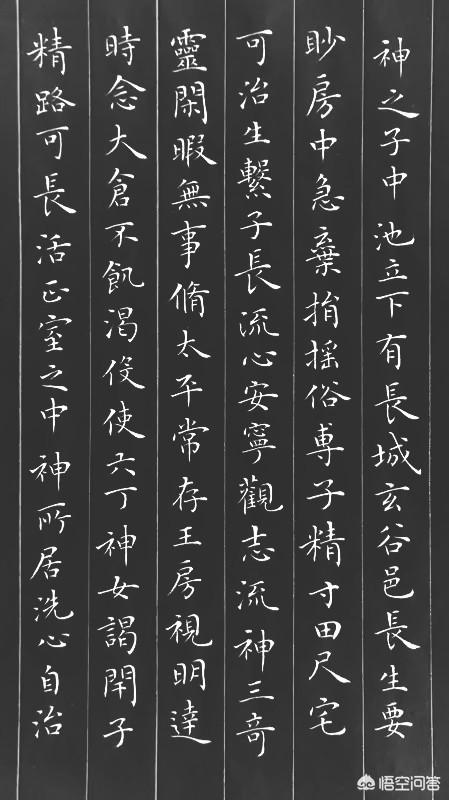 神之子中池立下有長城玄谷邑長生要
眇房中急棄捐摇俗専子精寸田尺宅
可治生繫子長流心安寧觀志流神三奇
靈閑暇無事脩太平常存王房視明達
時念大倉不飢渴伇使六丁神女謁閇子
精路可長活正室之中神所居洗心自治
悟空问答